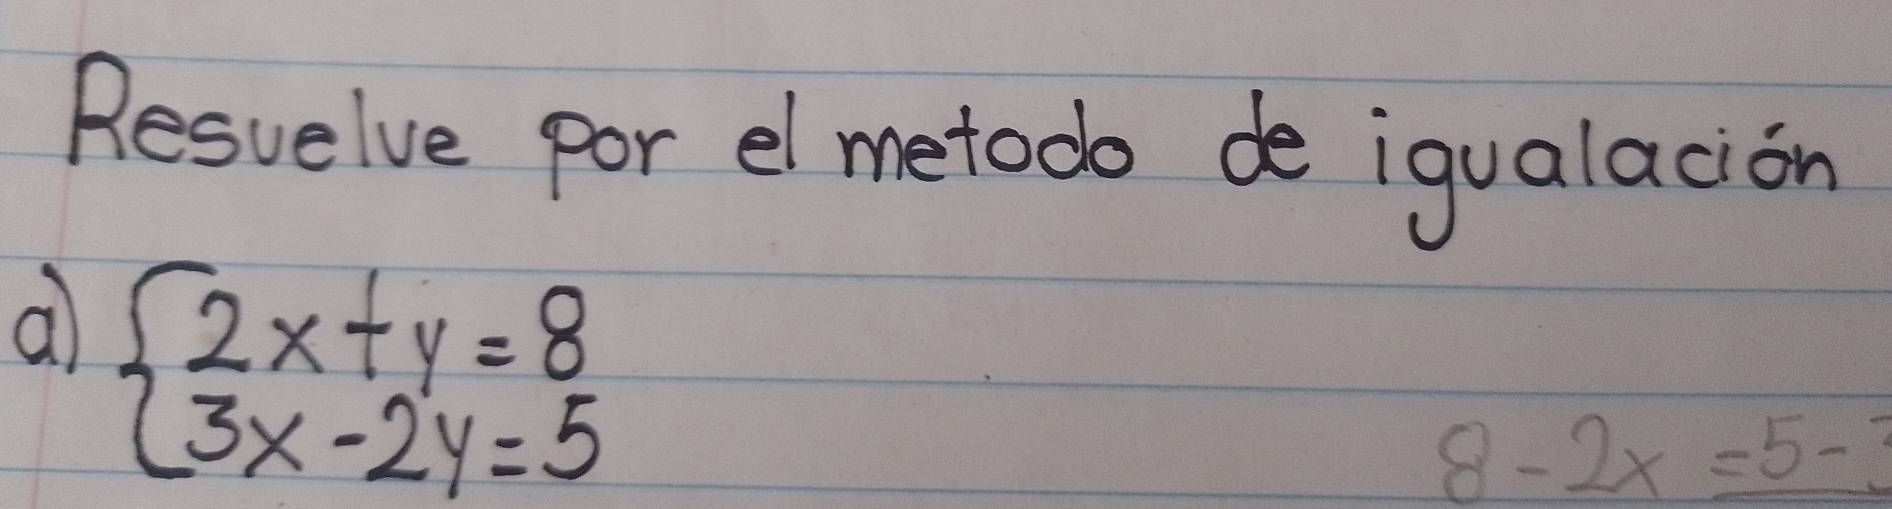 Resuelve por el metodo de igualación
a) { 2x + y = 8
3x - 2y = 5
8 - 2x = 5 - 3